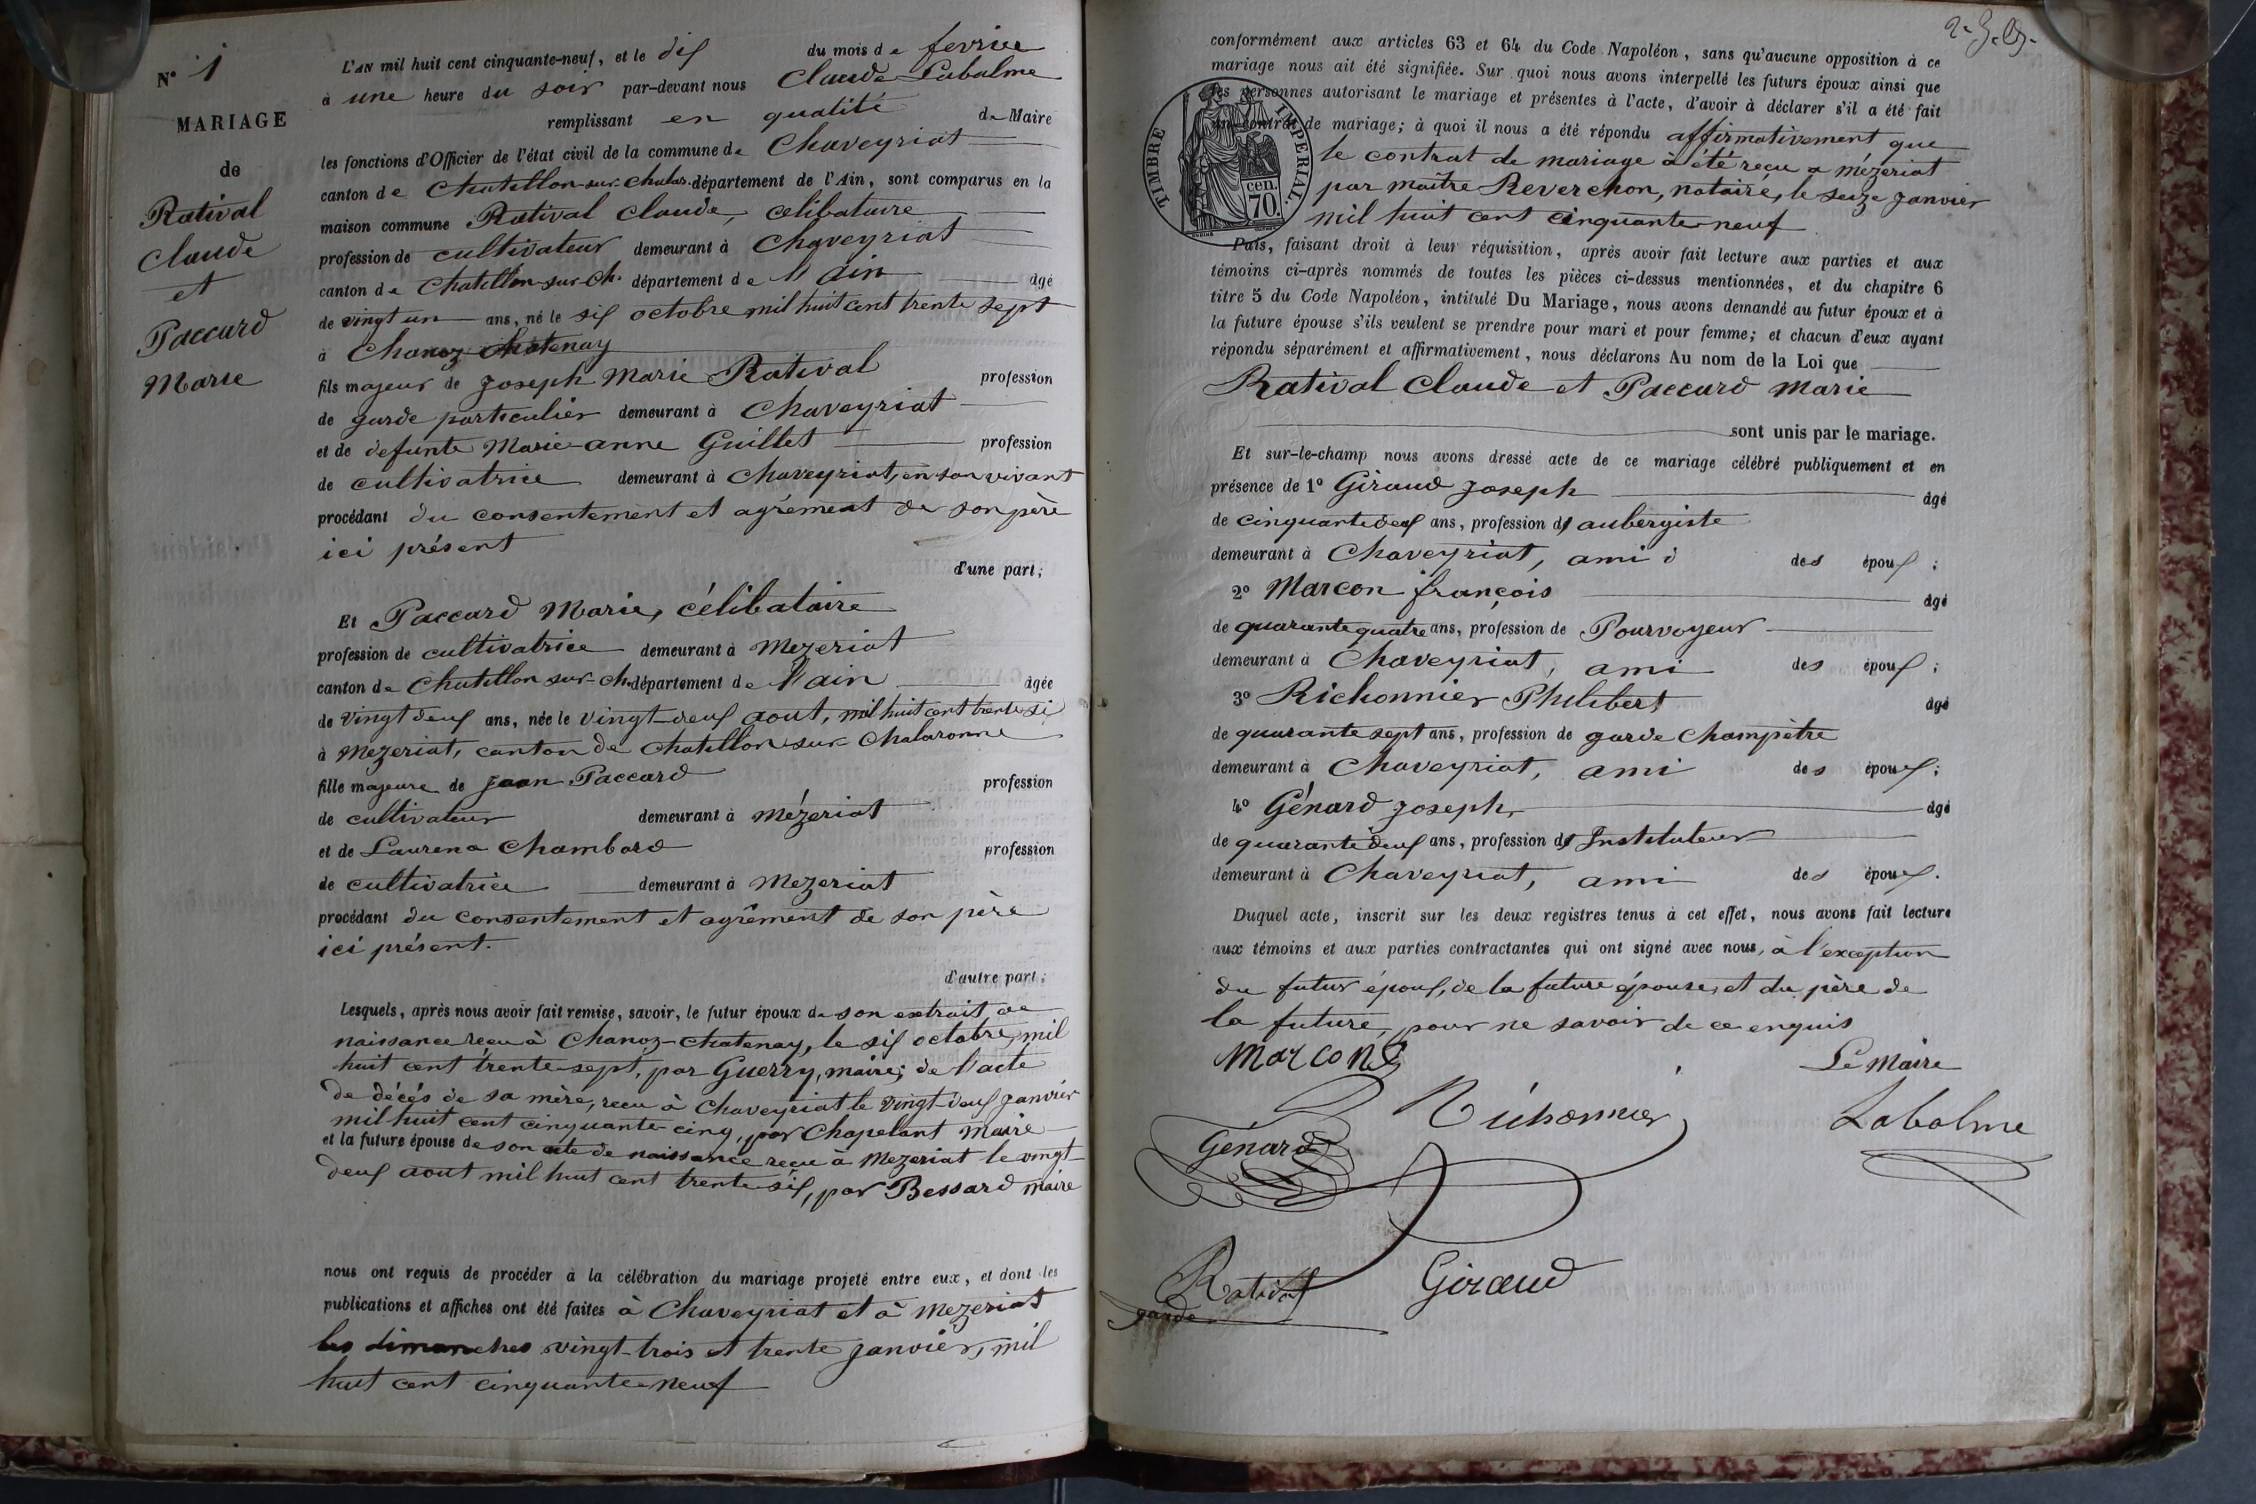 N° 1
MARIAGE
de
Ratival
Claude
et
Paccard
Marie
L'AN mil huit cent cinquante-neuf, et le dix du mois de fevrier
à une heure du soir par-devant nous Claude Labalme
remplissant en qualité de Maire
les fonctions d'Officier de l'état civil de la commune de Chaveyriat
canton de Chatillon-sur-Chalar. département de l'Ain, sont comparus en la
maison commune Ratival Claude, celibataire
profession de cultivateur demeurant à Chaveyriat
canton de Chatillon-sur-Ch. département de l'ain âgé
de vingt un ans, né le six octobre mil huit cent trente sept
à Chanoz-Chatenay
fils majeur de Joseph Marie Ratival profession
de garde particulier demeurant à Chaveyriat
et de defunte Marie-anne Guillet profession
de cultivatrice demeurant à Chaveyriat, en son vivant
procédant du consentement et agrément de son père
ici présent
d'une part;
Et Paccard Marie, célibataire
profession de cultivatrice demeurant à Mezeriat
canton de Chatillon sur-Ch. département de l'ain âgée
de vingt deux ans, née le vingt-deux aout, mil huit cent trente si
à Mezeriat, canton de Chatillon sur Chalaronne
fille majeure de Jean Paccard profession
de cultivateur demeurant à Mézeriat
et de Laurena Chambard profession
de cultivatrice demeurant à Mezeriat
procédant du consentement et agrêment de son père
ici présent.
d'autre part;
Lesquels, après nous avoir fait remise, savoir, le futur époux de son extrait de
naissance reçu à Chanoz-Chatenay, le six octobre, mil
huit cent trente-sept, par Guerry, maire; de l'acte
de décès de sa mère, reçu à Chaveyriat le vingt-deux janvier
mil huit cent cinquante-cinq, par Chapelant Maire
et la future épouse de son acte de naissance reçu à Mezeriat le vingt
deux aout mil huit cent trente-six, par Bessard maire
nous ont requis de procéder à la célébration du mariage projeté entre eux, et dont les
publications et affiches ont été faites à Chaveyriat et à Mezeriat
les dimanches vingt-trois et trente janvier, mil
huit cent cinquante neuf
conformément aux articles 63 et 64 du Code Napoléon, sans qu'aucune opposition à ce
mariage nous ait été signifiée. Sur quoi nous avons interpellé les futurs époux ainsi que
les personnes autorisant le mariage et présentes à l'acte, d'avoir à déclarer s'il a été fait
un contrat de mariage; à quoi il nous a été répondu affirmativement que
le contrat de mariage à été reçu à Mézériat
par maître Reverchon, notaire, le seize janvier
mil huit cent cinquante neuf
TIMBRE IMPERIAL.
cen.
70.
Puis, faisant droit à leur réquisition, après avoir fait lecture aux parties et aux
témoins ci-après nommés de toutes les pièces ci-dessus mentionnées, et du chapitre 6
titre 5 du Code Napoléon, intitulé Du Mariage, nous avons demandé au futur époux et à
la future épouse s'ils veulent se prendre pour mari et pour femme; et chacun d'eux ayant
répondu séparément et affirmativement, nous déclarons Au nom de la Loi que
Ratival Claude et Paccard Marie
sont unis par le mariage.
Et sur-le-champ nous avons dressé acte de ce mariage célébré publiquement et en
présence de 1° Giraud Joseph âgé
de cinquante deux ans, profession d' aubergiste
demeurant à Chaveyriat, ami des époux ;
2° Marcon françois âgé
de quarante quatre ans, profession de Pourvoyeur
demeurant à Chaveyriat, ami des époux ;
3° Richonnier Philibert âgé
de quarante sept ans, profession de garde Champêtre
demeurant à Chaveyriat, ami des époux ;
4° Génard Joseph, âgé
de quarante deux ans, profession d' Instituteur
demeurant à Chaveyriat, ami des époux.
Duquel acte, inscrit sur les deux registres tenus à cet effet, nous avons fait lecture
aux témoins et aux parties contractantes qui ont signé avec nous, à l'exception
du futur époux, de la future épouse, et du père de
la future, pour ne savoir de ce enquis
Marcon Le Maire
Richonnier Labalme
Génard
Rativat Giraud
garde